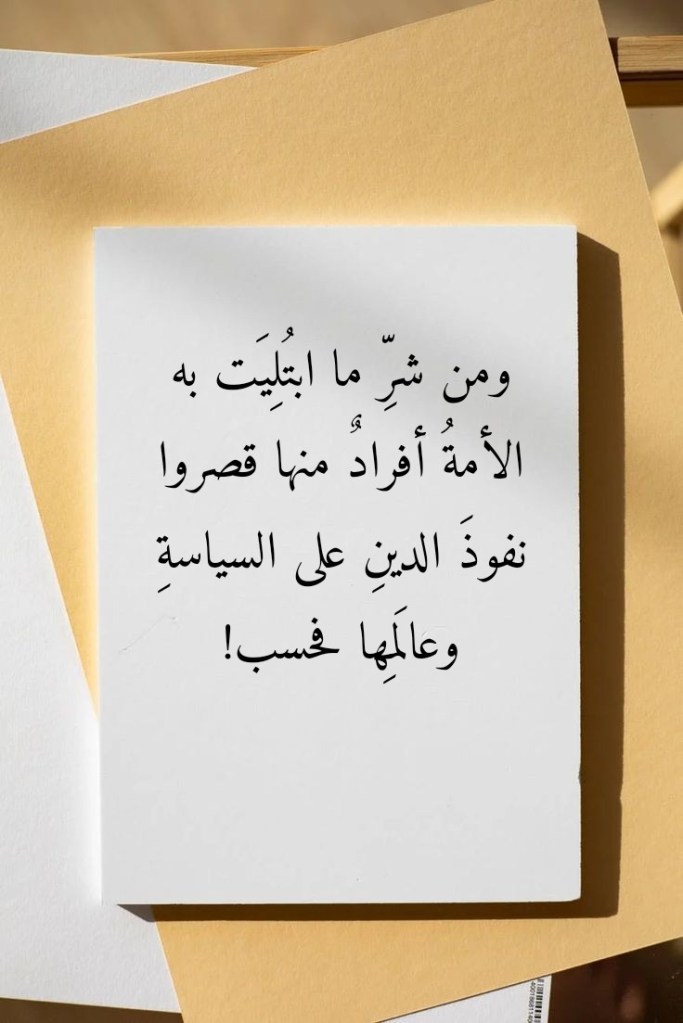 ومن شرِّ ما ابتُلِيَت به
الأمةُ أفرادٌ منها قصروا
نفوذَ الدينِ على السياسةِ
وعالَمِها فحسب!